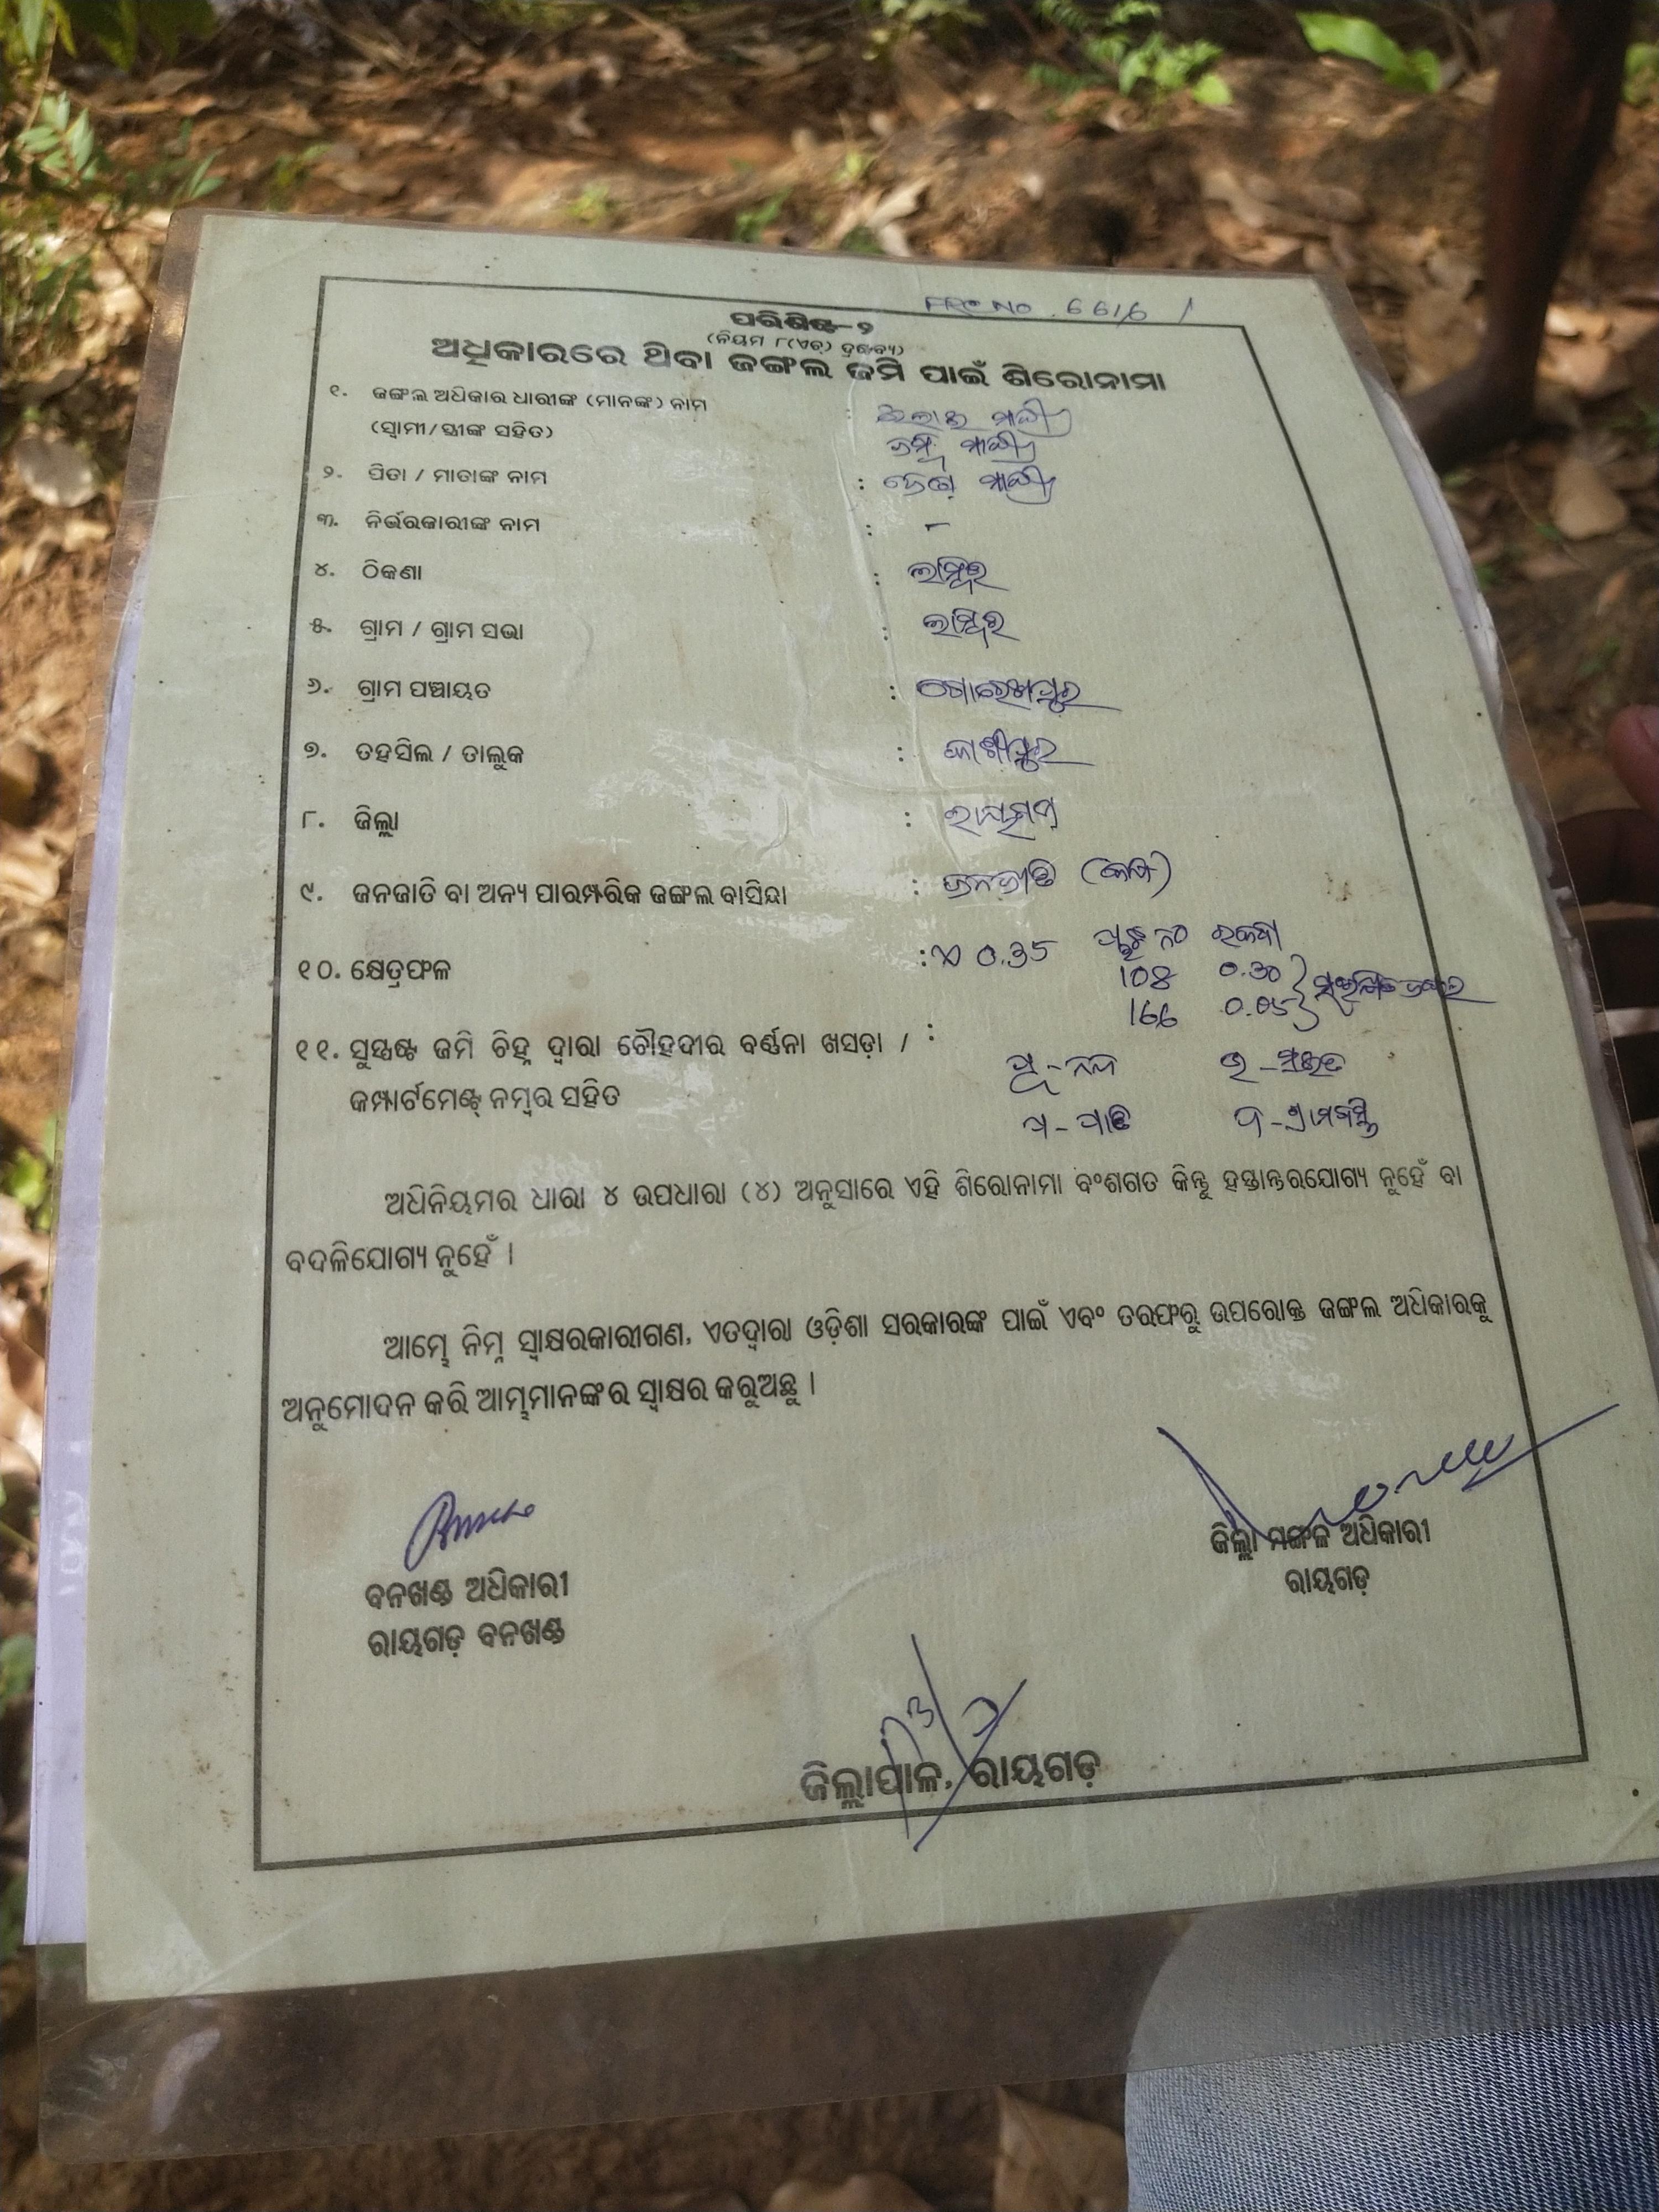 FRC NO. 6616 /
ପରିଶିଷ୍ଟ-୨
(ନିୟମ ୮(ଏଚ୍) ଦ୍ରଷ୍ଟବ୍ୟ)
ଅଧିକାରରେ ଥିବା ଜଙ୍ଗଲ ଜମି ପାଇଁ ଶିରୋନାମା
୧. ଜଙ୍ଗଲ ଅଧିକାର ଧାରୀଙ୍କ (ମାନଙ୍କ) ନାମ : ମାଝୀ
(ସ୍ୱାମୀ/ସ୍ତ୍ରୀଙ୍କ ସହିତ) ମାଝୀ
୨. ପିତା / ମାତାଙ୍କ ନାମ : ମାଝୀ
୩. ନିର୍ଭରକାରୀଙ୍କ ନାମ : –
୪. ଠିକଣା :
୫. ଗ୍ରାମ / ଗ୍ରାମ ସଭା :
୬. ଗ୍ରାମ ପଞ୍ଚାୟତ : ଗୋରଖପୁର
୭. ତହସିଲ / ତାଲୁକ : କାଶୀପୁର
୮. ଜିଲ୍ଲା : ରାୟଗଡ଼
୯. ଜନଜାତି ବା ଅନ୍ୟ ପାରମ୍ପରିକ ଜଙ୍ଗଲ ବାସିନ୍ଦା : ଜନଜାତି
୧୦. କ୍ଷେତ୍ରଫଳ : ଏ 0.35 ପ୍ଲଟ ନଂ ରକବା
108 0.30
166 0.05
୧୧. ସୁସ୍ପଷ୍ଟ ଜମି ଚିହ୍ନ ଦ୍ୱାରା ଚୌହଦୀର ବର୍ଣ୍ଣନା ଖସଡ଼ା / :
କମ୍ପାର୍ଟମେଣ୍ଟ୍ ନମ୍ବର ସହିତ ପୂ - ନଳା ଉ - ପର୍ବତ
ପ - ଦ - ଗ୍ରାମଜମି
ଅଧିନିୟମର ଧାରା ୪ ଉପଧାରା (୪) ଅନୁସାରେ ଏହି ଶିରୋନାମା ବଂଶଗତ କିନ୍ତୁ ହସ୍ତାନ୍ତରଯୋଗ୍ୟ ନୁହେଁ ବା
ବଦଳିଯୋଗ୍ୟ ନୁହେଁ ।
ଆମ୍ଭେ ନିମ୍ନ ସ୍ୱାକ୍ଷରକାରୀଗଣ, ଏତଦ୍ୱାରା ଓଡ଼ିଶା ସରକାରଙ୍କ ପାଇଁ ଏବଂ ତରଫରୁ ଉପରୋକ୍ତ ଜଙ୍ଗଲ ଅଧିକାରକୁ
ଅନୁମୋଦନ କରି ଆମ୍ଭମାନଙ୍କର ସ୍ୱାକ୍ଷର କରୁଅଛୁ ।
ବନଖଣ୍ଡ ଅଧିକାରୀ
ରାୟଗଡ଼ ବନଖଣ୍ଡ
ଜିଲ୍ଲା ମଙ୍ଗଳ ଅଧିକାରୀ
ରାୟଗଡ଼
ଜିଲ୍ଲାପାଳ, ରାୟଗଡ଼